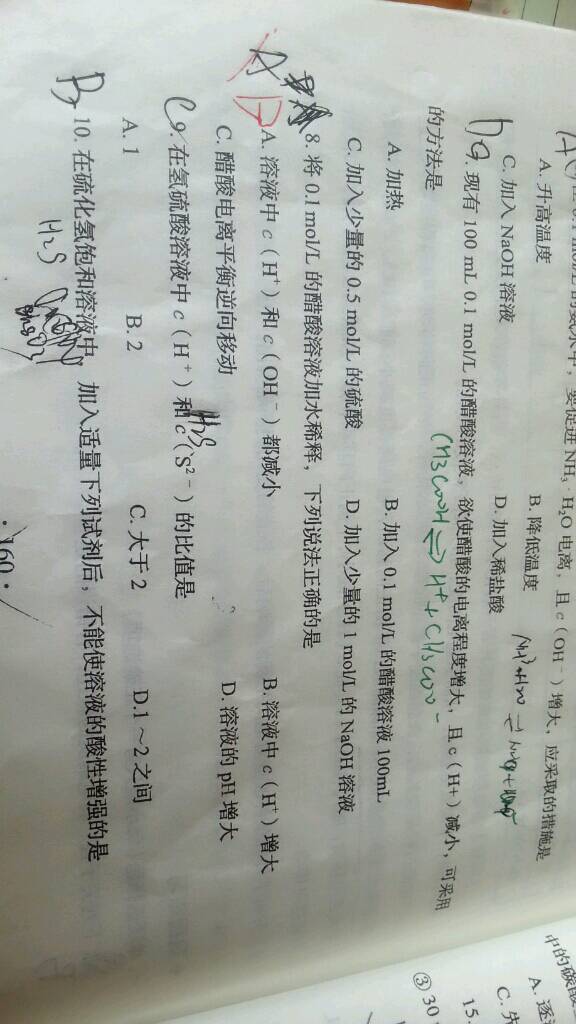 要促进 NH₃·H₂O 电离,且 c(OH⁻)增大,应采取的措施是
A. 升高温度 B. 降低温度
C. 加入 NaOH 溶液 D. 加入稀盐酸
D
7. 现有 100 mL 0.1 mol/L 的醋酸溶液,欲使醋酸的电离程度增大,且 c(H+)减小,可采用
的方法是
CH3COOH ⇌ H⁺ + CH3COO⁻
A. 加热 B. 加入 0.1 mol/L 的醋酸溶液 100mL
C. 加入少量的 0.5 mol/L 的硫酸 D. 加入少量的 1 mol/L 的 NaOH 溶液
A D
8. 将 0.1 mol/L 的醋酸溶液加水稀释,下列说法正确的是
A. 溶液中 c(H⁺)和 c(OH⁻)都减小 B. 溶液中 c(H⁺)增大
C. 醋酸电离平衡逆向移动 D. 溶液的 pH 增大
C
9. 在氢硫酸溶液中 c(H⁺)和 c(S²⁻)的比值是
H2S
A. 1 B. 2 C. 大于 2 D. 1～2 之间
B
10. 在硫化氢饱和溶液中,加入适量下列试剂后,不能使溶液的酸性增强的是
H2S
·160·
A. 逐
C. 先
15.
③ 30